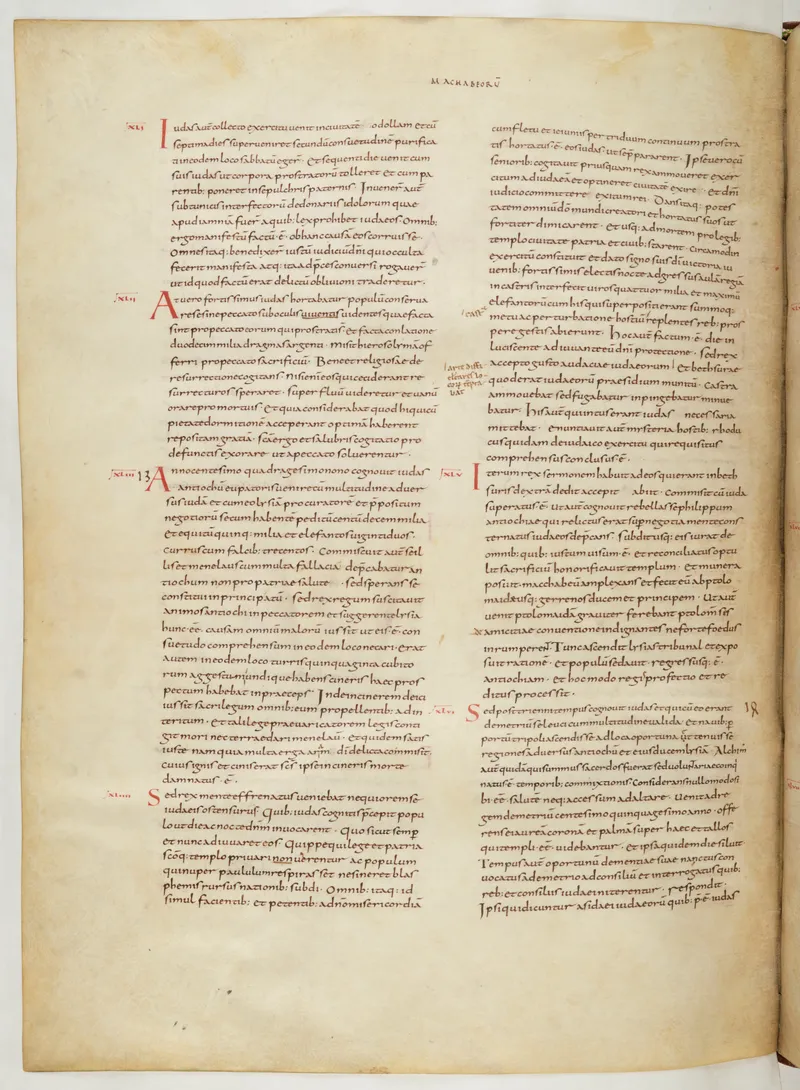 MACHABEORŪ
XLI
Iudas aut̄ collecto exercitu uenit in ciuitatē odollam et cū
septima dies superueniret secundū consuetudinē purifica
ti in eodem loco sabbatū eger̄ · Et sequenti die uenit cum
suis iudas ut corpora prostratorū tolleret et cum pa
rentib: poneret in sepulchris paternis · Inuener̄ aut̄
sub tunicis interfectorū de donariis idolorum quae
apud iamniā fuer̄ a quib: lex prohibet iudaeos Omnib:
ergo manifestū factū · ē · ob hanc causā eos corruisse ·
Omnes itaq: benedixer̄ iustū iudiciū dn̄i qui occulta
fecerit manifesta atq: ita ad p̄ces conuersi rogauer̄
ut id quod factū erat delictū obliuioni traderetur ·
XLII
At uero fortissimus iudas hortabatur populū conserua
re se sine peccato sub oculis uidentes quae facta
sint pro peccato eorum qui prostrati s̄ · Et facta conlatione
duodecim milia dragmas argenti · misit hierosolymā of
ferri pro peccato sacrificiū · Bene et religiose de
resurrectione cogitans · Nisi enī eos qui ceciderant re
surrecturos speraret · superfluū uideretur et uanū
orare pro mortuis · Et quia considerabat quod hi qui cū
pietate dormitionē acceperant optimā haberent
repositam gratiā · sc̄a ergo et salubris cogitatio pro
defunctis exorare ut a peccato soluerentur ·
XLIII 13
Anno centesimo quadragesimo nono cognouit iudas
Antiochū eupatorē uenire cū multitudine aduer
sus iudā et cum eo lysiā procuratorē et p̄positum
negotiorū secum habentē peditū centū decem milia
et equitū quinq: milia et elefantos uigintiduos ·
currus cum falcib: trecentos · Commiscuit aut̄ se il
lis et menelaus cum multa fallacia dep̄cabatur an
tiochum non pro patriae salute · sed sperans se
constitui in principatū · sed rex regum suscitauit
animos antiochi in peccatorem et suggerente lysia
hunc · eē · causam omniū malorū iussit ut eis · ē · con
suetudo comprehensum in eodem loco necari · Erat
autem in eodem loco turris quinquaginta cubito
rum aggestum undique habens cineris haec pros
pectum habebat in praeceps · Inde in cinerem deici
iussit sacrilegum omnib: eum propellentib: ad in
teritum · Et tali lege praeuaricatorem legis conti
git mori nec terrae dari menelaū · Et quidem satis
iuste nam quia multa erga dī delicta commisit:
cuius ignis et cinis erat sc̄s ipse in cineris morte
damnatus · ē ·
XLIIII
Sed rex mente effrenatus ueniebat nequiorem se
iudaeis ostensurus Quib: iudas cognitis p̄cepit popu
lo ut die ac nocte dn̄m inuocarent · Quo sicut semp̄
et nunc adiuuaret eos Quippe qui lege et patria
sc̄oq: templo priuari non uererentur ac populum
qui nuper paululum respirasset ne sineret blas
phemis rursus nationib: subdi · Omnib: itaq: id
simul facientib: et petentib: a dn̄o misericordiā
cum fletu et ieiuniis per triduum continuum prostra
tis hortatus · ē · eos iudas ut se p̄pararent · Ipse uero cū
seniorib: cogitauit priusquam rex ammoueret exer
citum ad iudaeā et optineret ciuitatē exire · Et dn̄i
iudicio committere exitum rei · Dans itaq: potes
tatem omniū d̄o mundi creatori et hortatus suos ut
fortiter dimicarent · et usq: ad mortem pro legib:
templo ciuitate patria et ciuib: starent · Circa modin
exercitū constituit et dato signo suis dī uictoria iu
uenib: fortissimis electis nocte adgressus aulā regiā
in castris interfecit uiros quattuor milia et maximū
elefantorū cum his qui superpositi erant summoq:
metu ac perturbatione hostiū castra replentes reb: pros
pere gestis abierunt · Hoc aut̄ factum · ē · die in
luciscente adiuuante eū dn̄i protectione · Sed rex
accepto gustu audaciae iudaeorum et bethsurae
quod erat iudaeorū praesidium munitū · Castra
ammouebat sed fugabatur inpingebatur minue
batur · His aut̄ qui intus erant iudas necessaria
mittebat · enuntiauit aut̄ mysteria hostib: rhodo
cus quidam de iudaico exercitu qui requisitus
comprehensus conclusus · ē ·
XLV
Iterum rex sermonem habuit ad eos qui erant in beth
suris dextrā dedit accepit abiit · Commisit cū iuda
superatus · ē · Ut aut̄ cognouit rebellasse philippum
antiochiae qui relictus erat sup̄ negotia mente cons
ternatus iudaeos dep̄cans · subditusq: eis iurat de
omnib: quib: iustum uisum · ē · et reconciliatus optu
lit sacrificiū honorificauit templum · et munera
posuit · machabeū amplexans et fecit eū ab ptolo
maida usq: gerrenos ducem et principem · Ut aut̄
uenit ptolomaidā grauiter ferebant ptolom̄ses
amicitiae conuentione indignantes ne forte foedus
inrumperet · Tunc ascendit lysias tribunal et expo
suit rationē · et populū sedauit · regressusq: ē ·
antiochiam · Et hoc modo regis profectio et re
ditus processit ·
XLVI
Sed post triennii tempus cognouit iudas et qui cū eo erant
demetriū seleuci cum multitudine ualida · et nauib: p̄
portū tripolis ascendisse ad loca oportuna q̄t tenuisse
regiones aduersus antiochū et eius ducem lysiā · Alchim'
aut̄ quidā qui summus sacerdos fuerat sed uoluntarie coinq
natus · ē · temporib: commixtionis considerans nullo modo si
bi · eē · salutē neq: accessum ad altare · Uenit ad re
gem demetriū centesimo quinquagesimo anno · offe
rens ei aureā coronā et palmā super haec et tallos
qui templi · eē · uidebantur · Et ipsa quidem die siluit ·
Tempus aut̄ oportunū dementiae suae nanctus con
uocatus a demetrio ad consiliū et interrogatus quib:
reb: et consiliis iudaei niterentur · respondit ·
Ipsi qui dicuntur asidaei iudaeorū quib: p̄ē iudas